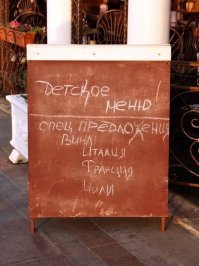 Детское
меню!
спец предложения
Вина:
Италия
Франция
Чили